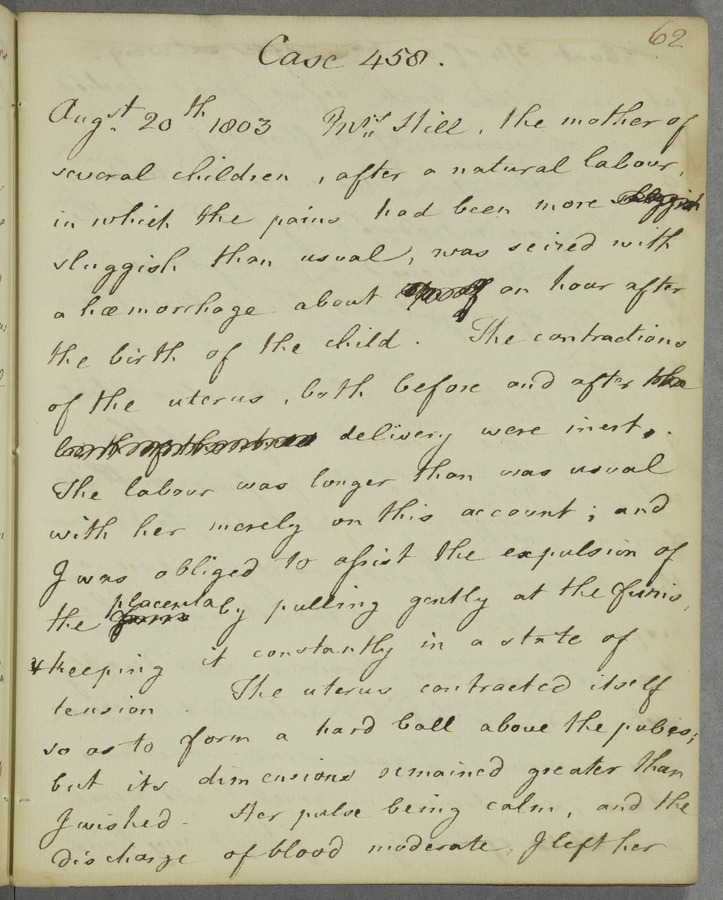 62
Case 458.
Augst. 20th 1803 Mrs. Hill, the mother of
several children, after a natural labour,
in which the pains had been more
sluggish than usual, was seized with
a hæmorrhage about an hour after
the birth of the child. The contractions
of the uterus, both before and after the
delivery were inert.
The labour was longer than was usual
with her merely on this account; and
I was obliged to assist the expulsion of
the placenta by pulling gently at the funis,
& keeping it constantly in a state of
tension. The uterus contracted itself
so as to form a hard ball above the pubes;
but its dimensions remained greater than
I wished. Her pulse being calm, and the
discharge of blood moderate, I left her